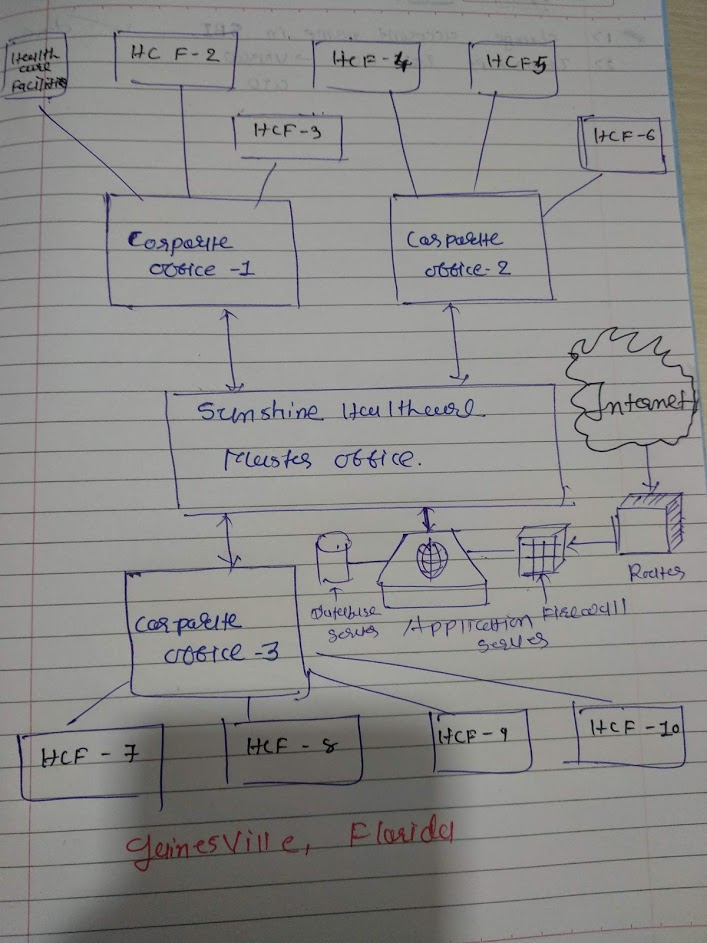 Health
care
Facilities
HC F-2
HCF-4
HCF5
HCF-3
HCF-6
Corporate
office -1
Corporate
office-2
Internet
Sunshine Healthcare
Master office.
Router
Database
server
Application
server
Firewall
Corporate
office -3
HCF - 7
HCF - 8
HCF - 9
HCF - 10
Gainesville, Florida